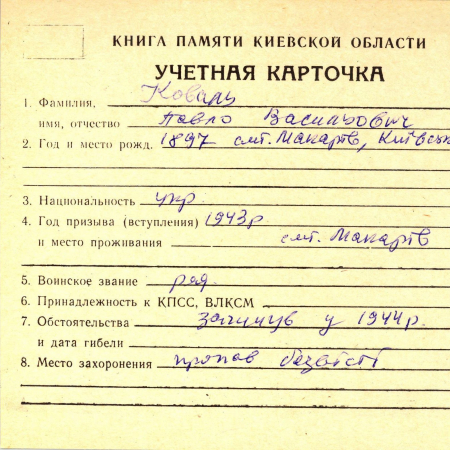 КНИГА ПАМЯТИ КИЕВСКОЙ ОБЛАСТИ
УЧЕТНАЯ КАРТОЧКА
1. Фамилия, Коваль
имя, отчество Павло Васильович
2. Год и место рожд. 1897 смт. Макарів, Київськ
3. Национальность укр.
4. Год призыва (вступления) 1943р
и место проживания смт. Макарів
5. Воинское звание ряд.
6. Принадлежность к КПСС, ВЛКСМ
7. Обстоятельства загинув у 1944р.
и дата гибели
8. Место захоронения пропав безвісті